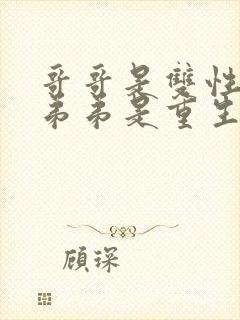 哥哥是雙性
弟弟是重生
顧琛